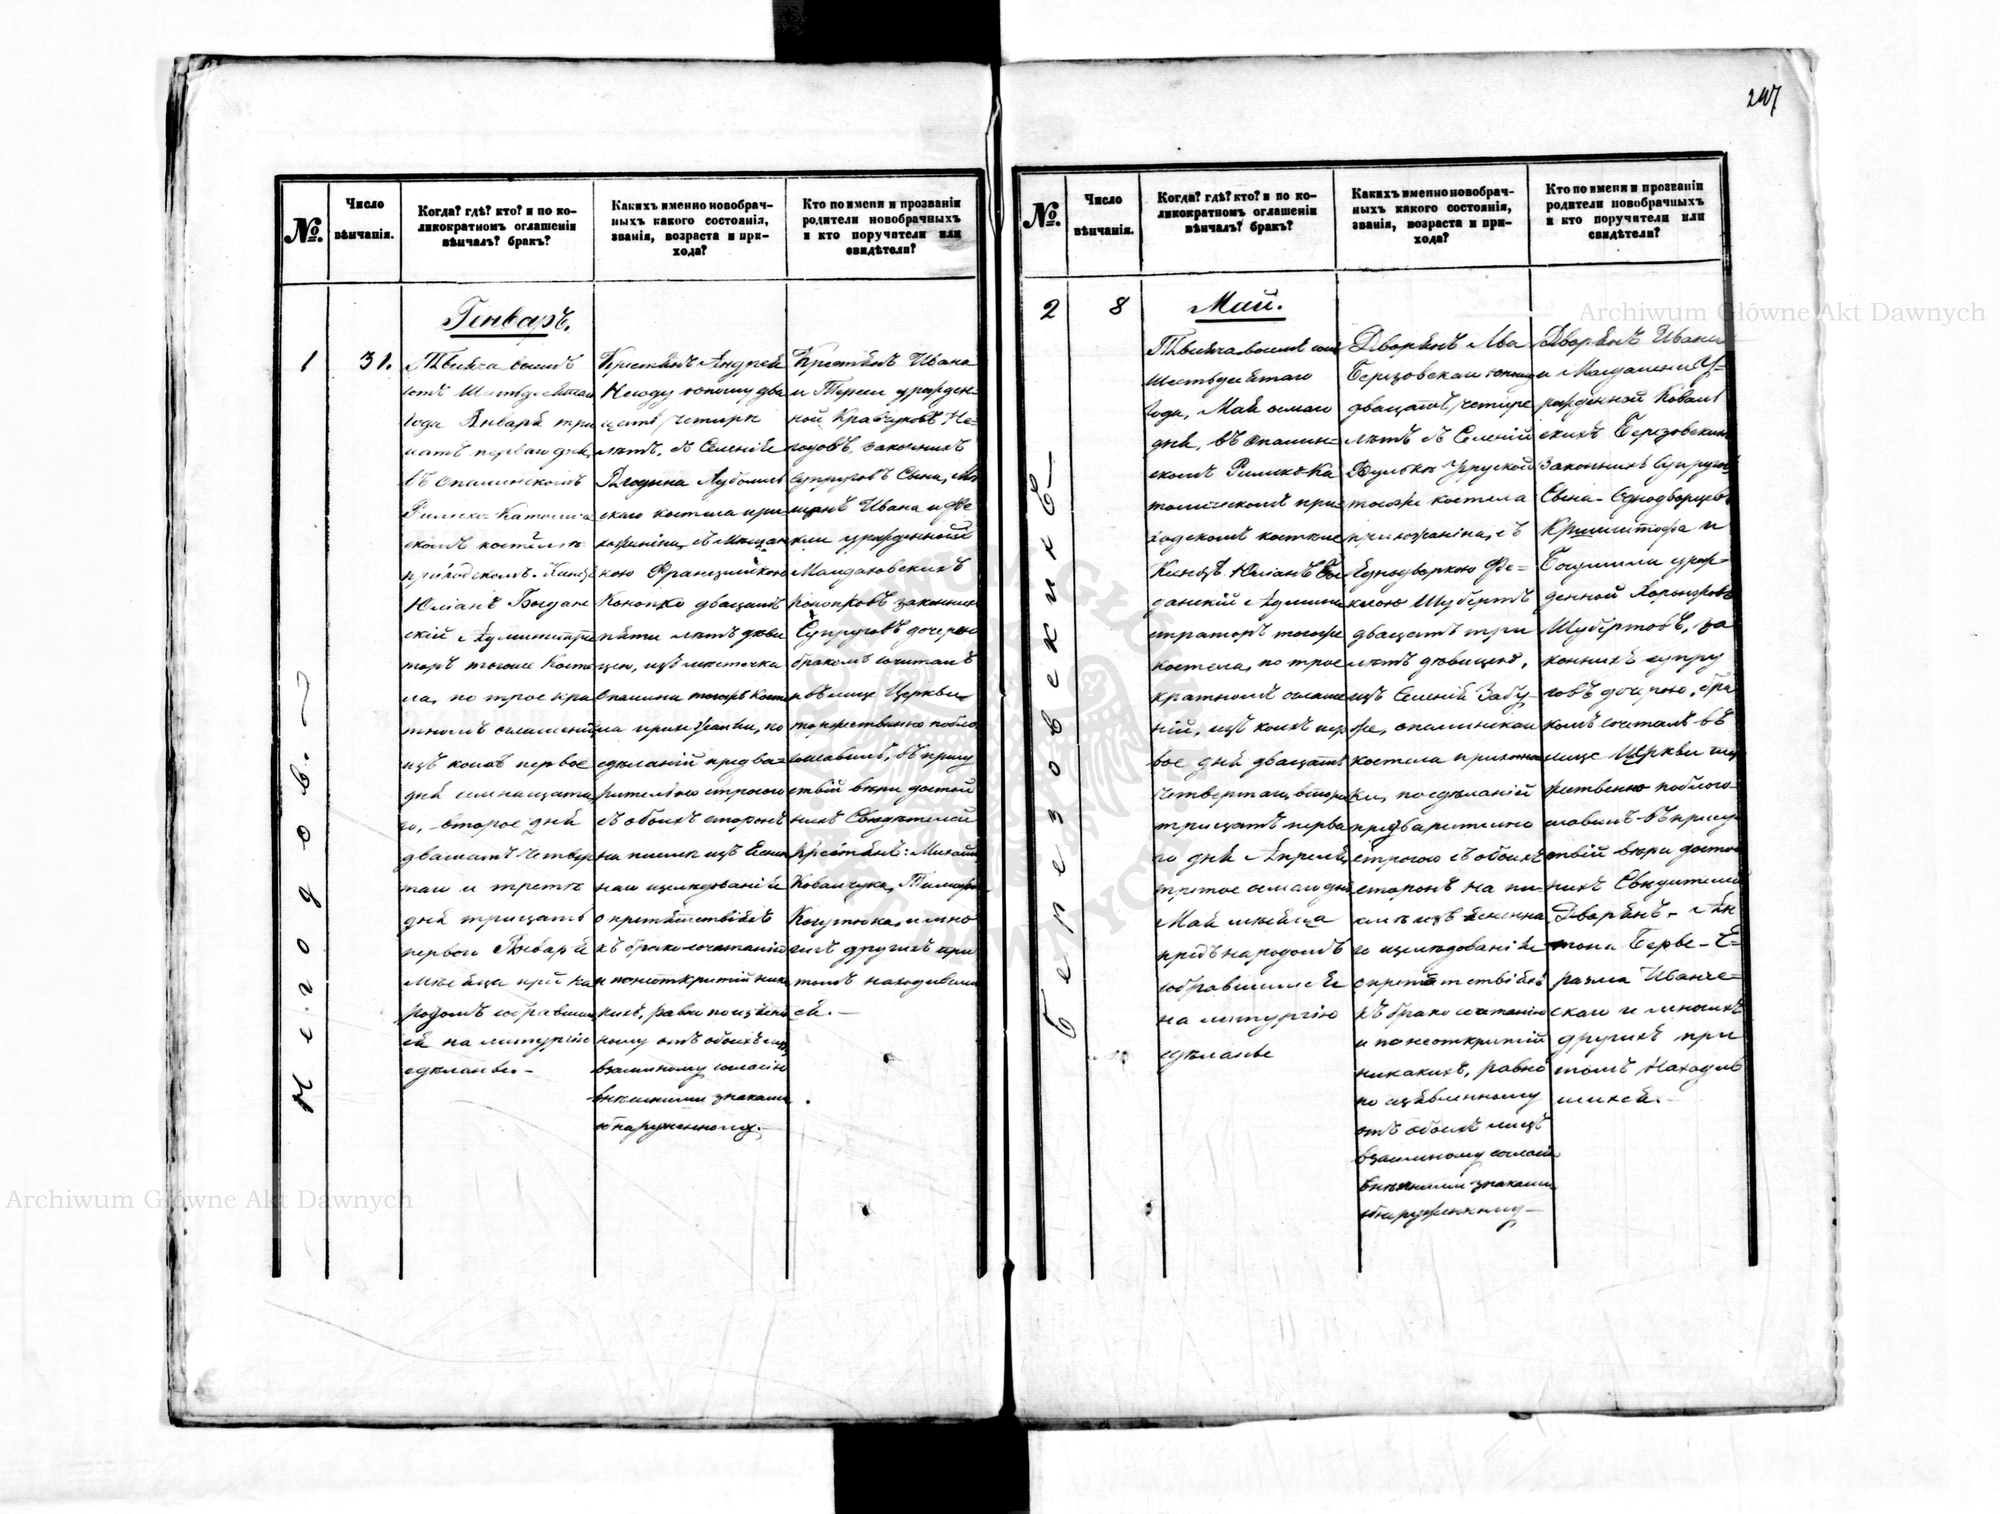 247
№.
Число
вѣнчанія.
Когда? гдѣ? кто? и по ко-
ликократномъ оглашеніи
вѣнчалъ? бракъ?
Какихъ именно новобрач-
ныхъ какого состоянія,
званія, возраста и при-
хода?
Кто по имени и прозваніи
родители новобрачныхъ
и кто поручители или
свидѣтели?
1
31.
Генварь.
Тысяча восемь
сотъ Шестьдесятаго
года Января три
цать перваго дня,
въ Опалинскомъ
Римско-Католиче
скомъ костелѣ
приходскомъ. Ксендзъ
Юліанъ Богдан
скій Администра
торъ тогоже Косте
ла, по троекра
тномъ оглашеніи,
изъ коихъ первое
дня семнацата
го, второе дня
двацать четвер
таго и третье
дня трицать
перваго Января
Мѣсяца при на
родѣ собравшем
ся на литургію
сдѣланіе.-
Крестьянъ Андрей
Негоду юношу два
цать четыри
лѣтъ, съ Селенія
скаго костела при
хожанина, съ мѣщан
кою Францишкою
Конопко двацать
пяти лѣтъ дѣви
цею, изъ мѣстечка
Опалина тогожъ Косте
ла прихожанки, по
сдѣланіи предва-
рительно строгаго
съ обоихъ сторонъ
на письмѣ изъ
наго изслѣдованія
о препятствіяхъ
къ бракосочетанію
и по неоткрытіи ника
кихъ, равно по изъявлен
ному отъ обоихъ лицъ
взаимному согласію
внѣшними знаками
обнаруженному.-
Крестьянъ Ивана
и Терезіи урожден-
ной Кравчуковъ Не-
годовъ, законныхъ
супруговъ Сына, Мѣ
щанъ Ивана и Ѳе
кли урожденной
Конопковъ законных
Супруговъ дочерью
бракомъ сочеталъ
и въ лице Церкви
торжественно побла
гословилъ, въ прису
ствіи вѣры достой
ныхъ Свидѣтелей
Крестьянъ: Михаила
Ковальчука,
и мно
гихъ другихъ при
томъ находивших
ся.-
Негодовъ.
№.
Число
вѣнчанія.
Когда? гдѣ? кто? и по ко-
ликократномъ оглашеніи
вѣнчалъ? бракъ?
Какихъ именно новобрач-
ныхъ какого состоянія,
званія, возраста и при-
хода?
Кто по имени и прозваніи
родители новобрачныхъ
и кто поручители или
свидѣтели?
2
8
Май.
Тысяча восемь сотъ
Шестьдесятаго
года, Мая осмаго
дня, въ Опалин-
скомъ Римско-Ка
толическомъ при-
ходскомъ костелѣ
Ксендзъ Юліанъ Бог
данскій Админи
страторъ тогоже
костела, по трое
кратномъ оглаше
ніи, изъ коихъ пер
вое дня двацать
четвертаго, второе
трицать перва
го дня Апрѣля,
третое осмаго дня
Мая мѣсяца
предъ народомъ
собравшимся
на литургію
сдѣланіе
Дворянъ Льва
Березовскаго юношу
двацать четыре
лѣтъ съ Селенія
Вульки Угруской
тогоже костела
прихожанина, съ
Однодворкою Ѳе-
клою Шубертъ
двацать три
лѣтъ дѣвицею,
изъ Селенія Забу-
же, опалинскаго
костела прихожан
ки, по сдѣланіи
предварительно
строгаго съ обоихъ
сторонъ на пи
сьмѣ
го изслѣдованія
о препятствіяхъ
къ бракосочетанію
и по неоткрытіи
никакихъ, равно
по изъявленному
отъ обоихъ лицъ
взаимному согласію
внѣшними знаками
обнаруженному-
Дворянъ Ивана
и Магдалены у-
рожденной Коваль
скихъ Березовских
законныхъ Супругов
Сына-Однодворцевъ
Криштофа и
урож-
денной
Шубертовъ, за
конныхъ супру
говъ дочерью, бра
комъ сочеталъ въ
лице Церкви торже
ственно поблаго-
словилъ въ присут
ствіи вѣры достой
ныхъ Свидѣтелей
Дворянъ-Ан
тона
разма Иванче=
скаго и многихъ
другихъ при
томъ находив
шихся.-
Березовскихъ
Archiwum Główne Akt Dawnych
Archiwum Główne Akt Dawnych